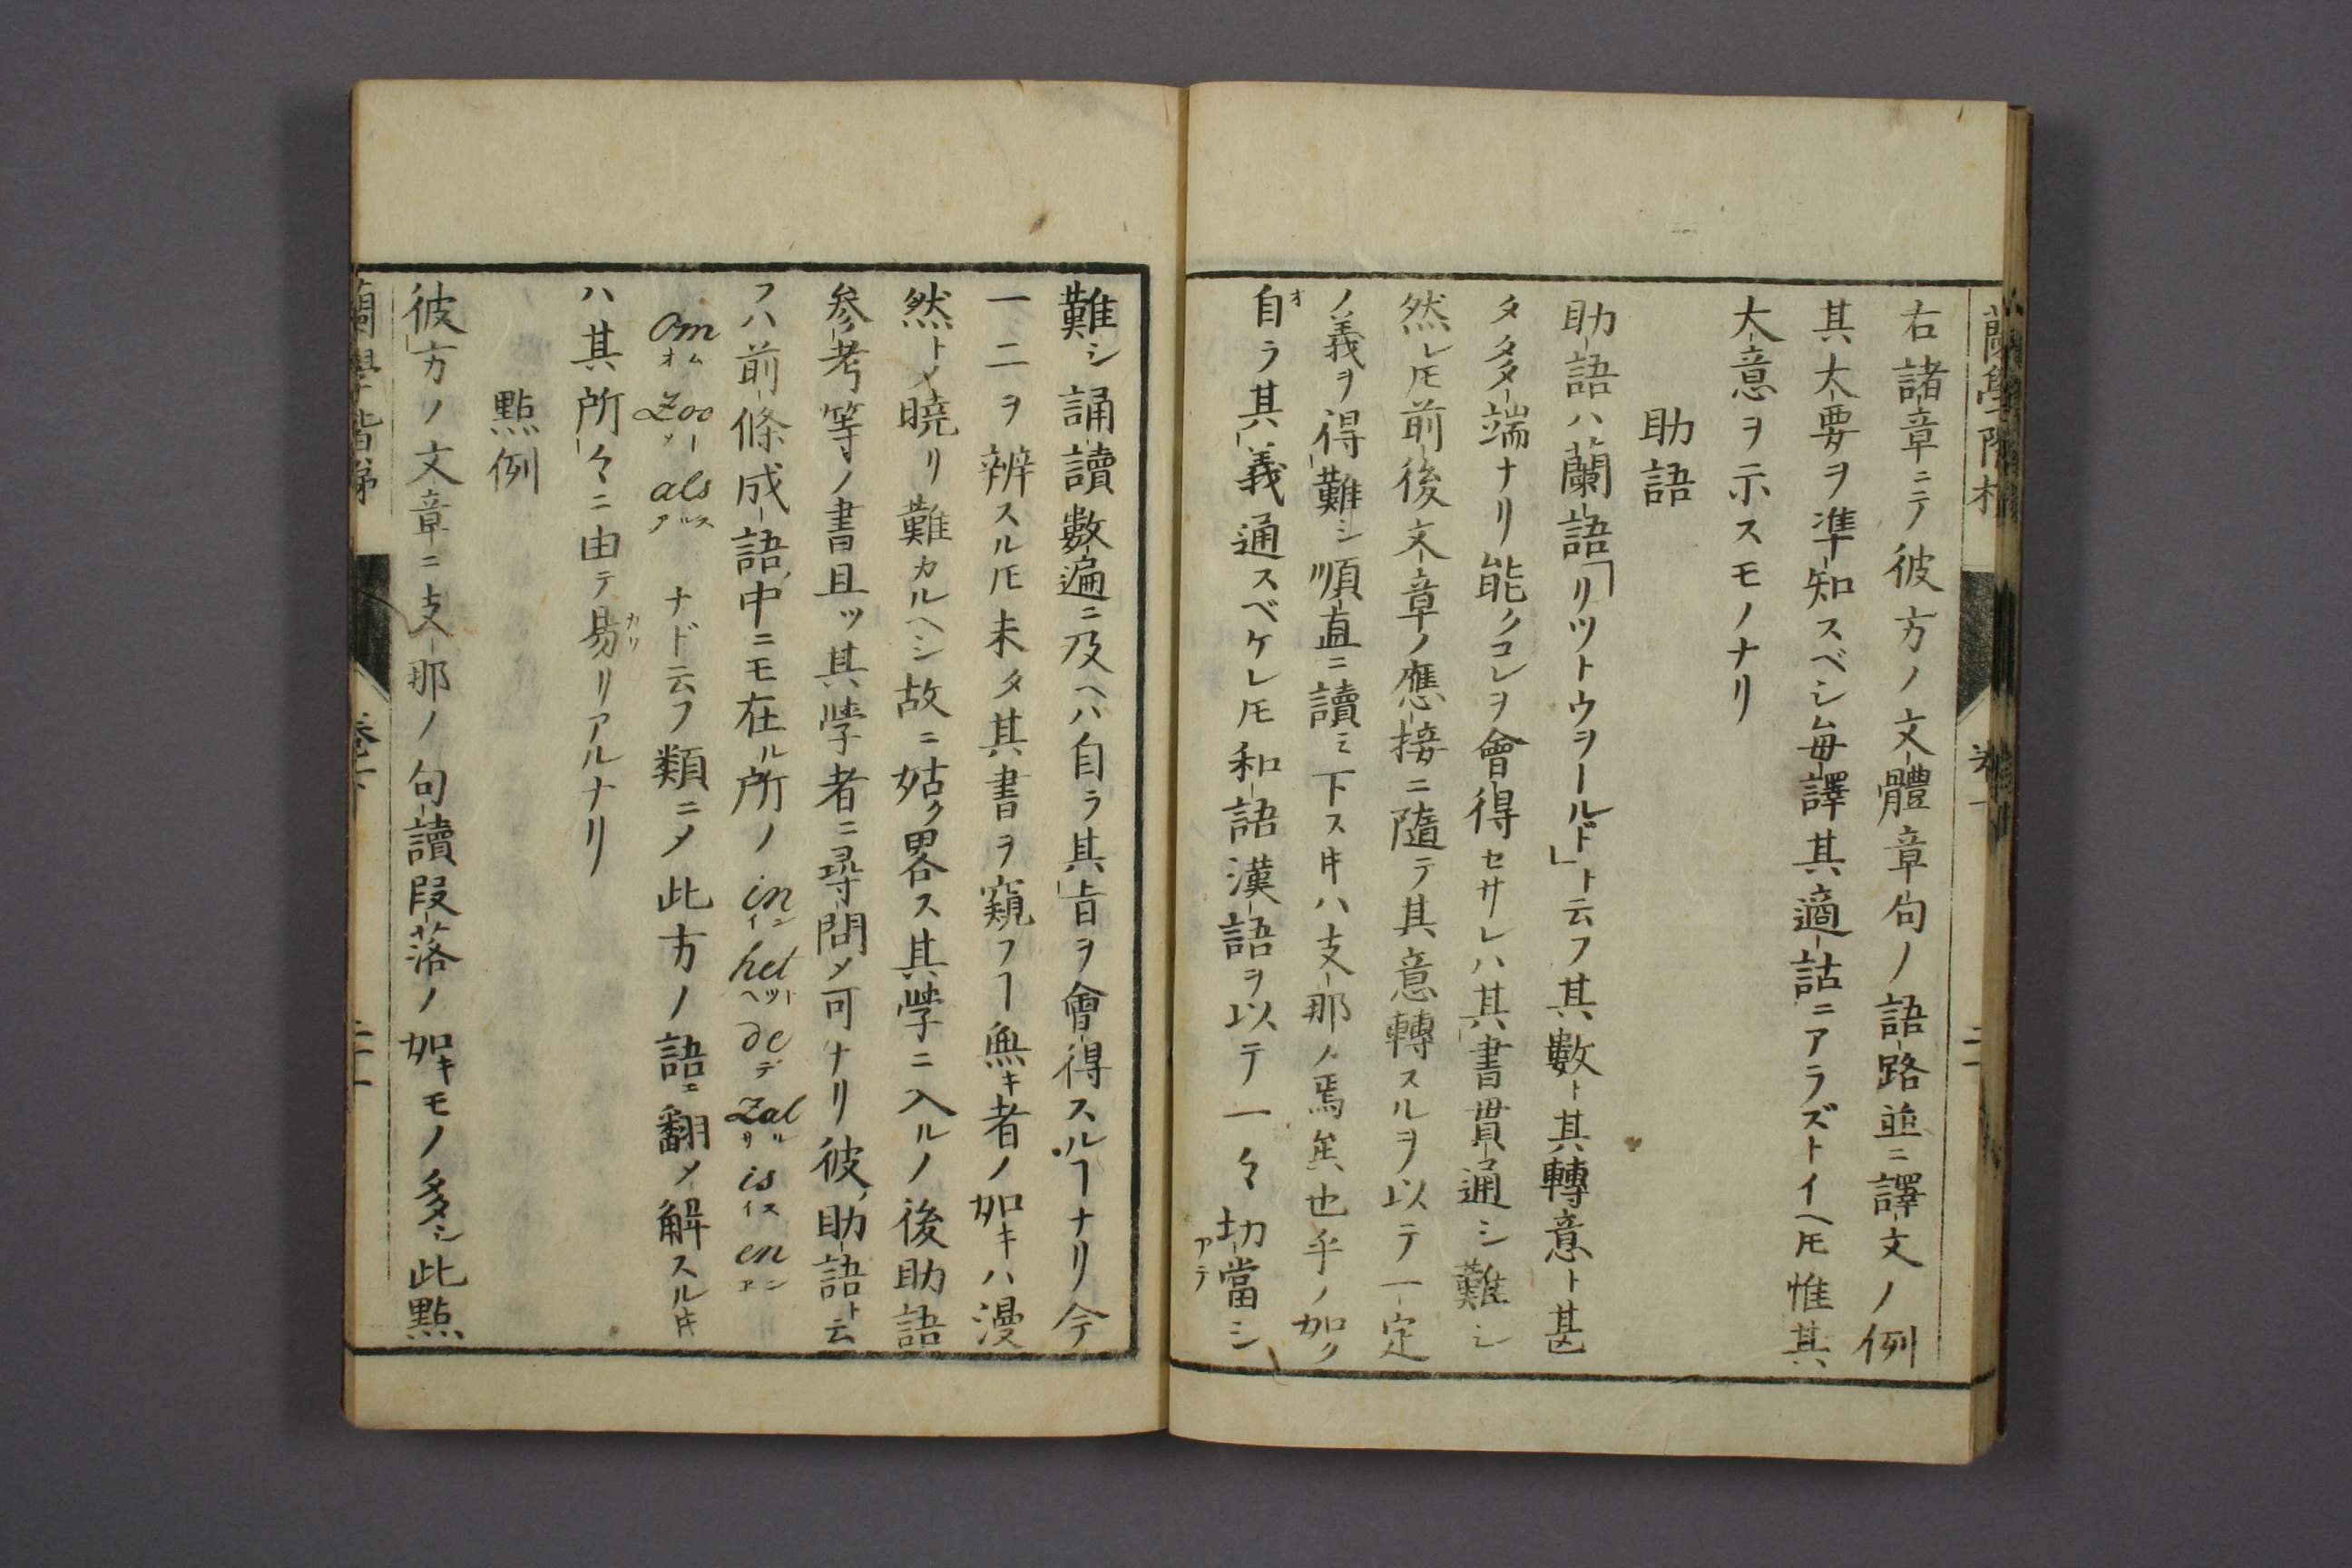 右諸章ニテ彼方ノ文體章句ノ語路並ニ譯文ノ例
其大要ヲ準知スベシ毎譯其適詁ニアラズトイヘ𪜈惟其
大意ヲ示スモノナリ
助語
助語ハ蘭語「リツトウヲールド」ト云フ其數ト其轉意ト甚
タ多端ナリ能クコレヲ會得セサレハ其書貫通シ難シ
然レ𪜈前後文章ノ應接ニ隨テ其意轉スルヲ以テ一定
ノ義ヲ得難シ順直ニ讀ミ下ス𪜀ハ支那ノ焉矣也乎ノ如ク
自ラ其義通スベケレ𪜈和語漢語ヲ以テ一々切當シ
難シ誦讀數遍ニ及ヘハ自ラ其旨ヲ會得スルヿナリ今
一二ヲ辨スル𪜈未タ其書ヲ窺フヿ無キ者ノ如キハ漫
然トメ曉リ難カルヘシ故ニ姑ク畧ス其学ニ入ルノ後助語
参考等ノ書且ツ其学者ニ尋問メ可ナリ彼助語ト云
フハ前條成語中ニモ在ル所ノ in イン het ヘット de デ Zal サル is イス en エン
om オム Zoo ソー als アルス ナド云フ類ニメ此方ノ語エ翻メ解スル𪜀
ハ其所々ニ由テ易リアルナリ
點例
彼方ノ文章ニ支那ノ句讀段落ノ如キモノ多シ此點
蘭學階梯